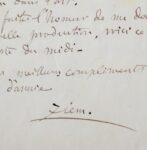 dans l'art.
faite l'honneur de me de
elle production, voici ce
du midi.
meilleurs compliments
d'amie
Ziem.